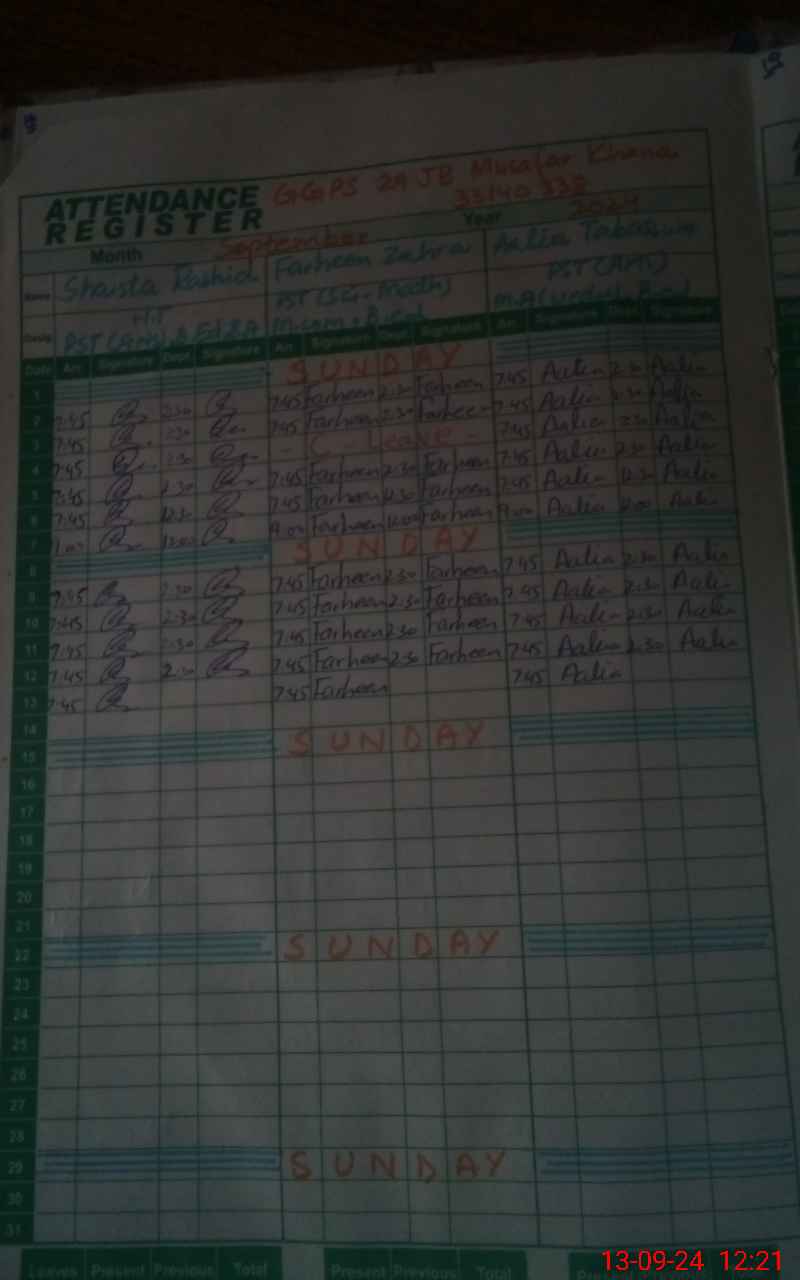 ATTENDANCE REGISTER
GGPS 29 JB Musafar Khana
33140338
Month September Year 2024
Name Shaista Rashid Farheen Zahra Aalia Tabassum
H.T PST (SC-Math) PST (Arts)
PST (Arts) M.com, B.ed
Date Arr. Signature Dept. Signature Arr. Signature Signature Arr. Signature Signature
1 SUNDAY
2 7:45 2:30 7:45 Farheen 2:30 Farheen 7:45 Aalia 2:30 Aalia
3 7:45 2:30 7:45 Farheen 2:30 Farheen 7:45 Aalia 2:30 Aalia
4 7:45 2:30 - C - Leave - 7:45 Aalia 2:30 Aalia
5 7:45 2:30 7:45 Farheen 2:30 Farheen 7:45 Aalia 2:30 Aalia
6 7:45 12:30 7:45 Farheen 12:30 Farheen 7:45 Aalia 12:30 Aalia
7 12:00 9:00 Farheen 12:00 Farheen 9:00 Aalia 12:00 Aalia
8 SUNDAY
9 7:45 2:30 7:45 Farheen 2:30 Farheen 7:45 Aalia 2:30 Aalia
10 7:45 2:30 7:45 Farheen 2:30 Farheen 7:45 Aalia 2:30 Aalia
11 7:45 2:30 7:45 Farheen 2:30 Farheen 7:45 Aalia 2:30 Aalia
12 7:45 2:30 7:45 Farheen 2:30 Farheen 7:45 Aalia 2:30 Aalia
13 7:45 7:45 Farheen 7:45 Aalia
14
15 SUNDAY
16
17
18
19
20
21
22 SUNDAY
23
24
25
26
27
28
29 SUNDAY
30
31
Leaves Present Previous Total Present Previous Total
13-09-24 12:21